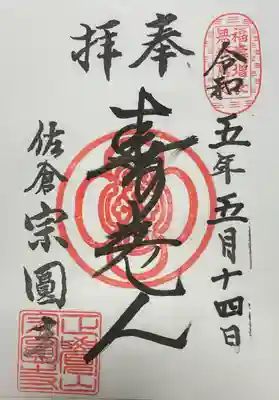 奉拝
令和五年五月十四日
寿老人
佐倉宗圓寺